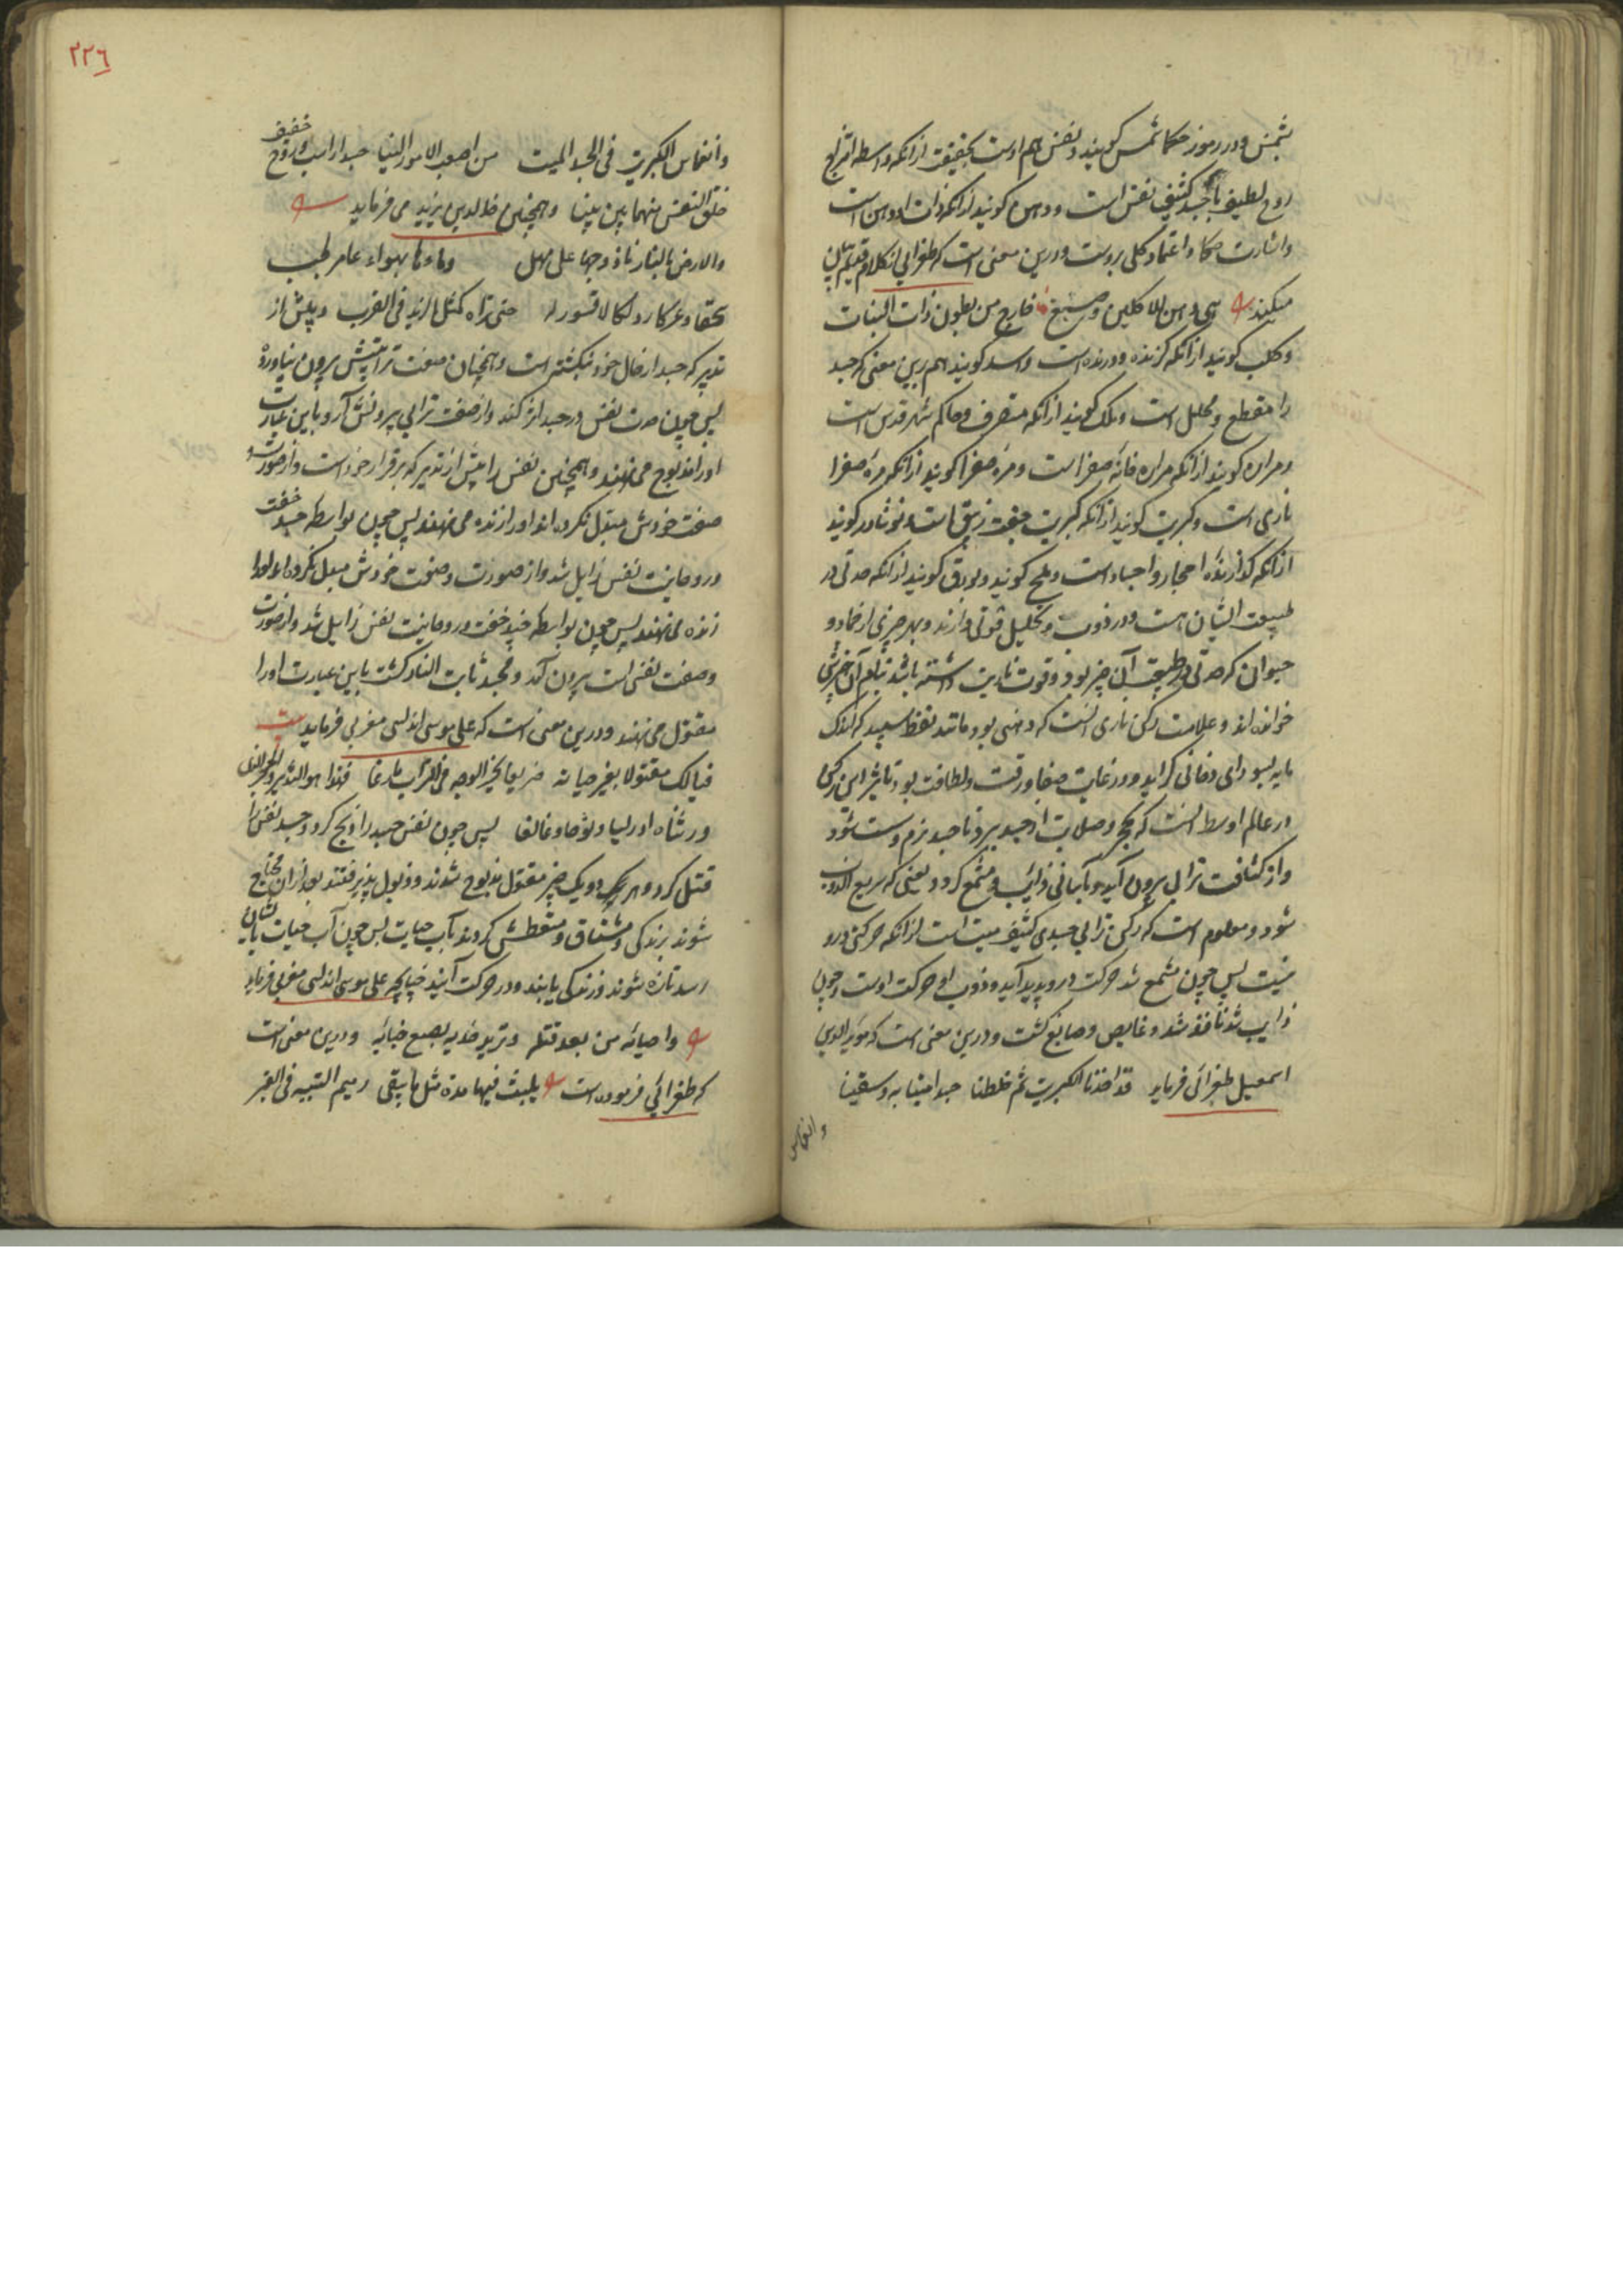 بشمس و در رموز حکما شمس کویند و نفس هم اوست بحقیقت از انکه واسطه امتزاج
روح لطیف با جسد کثیف نفس است و دهن کویند از انکه ذات او دهن است
و اشارت حکما و اعتماد کلی بروست و درین معنی است که طغرایی
میکند هی دهن للاکلین و صبغ خارج من بطون ذات النبات
و کلب کویند از انکه کزنده و درنده است و اسد کویند هم برین معنی که جسد
را مقطع و محلل است و ملک کویند از انکه متصرف و حاکم شهر قدس است
و مراره کویند از انکه مراره خانه صفرا است و مره صفرا کویند از انکه مره صفرا
ناری است و کبریت کویند از انکه کبریت جفت زیبق است و نوشادر کویند
از انکه کدازنده احجار و اجساد است و ملح کویند و بورق کویند از انکه حدتی در
طبیعت ایشان هست و در ذوب و تحلیل قوتی دارند و بهر چیزی از جماد و
حیوان که حدتی در طبیعت آن چیز بود و قوت ناریت داشته باشد بنام آن چیزش
خوانده اند و علامت رکن ناری انست که دهنی بود مانند نفط سپید که اندک
مایه بسودای دخانی کراید و در غایت صفا و رقت و لطافت بود و تاثیر این رکن
در عالم اوسط انست که تحجر و صلابت از جسد ببرد تا جسد نرم و سست شود
و از کثافت ترابی برون آید و باسانی ذایب و مشمع کردد یعنی که سریع الذوب
شود و معلوم است که رکن ترابی جسدی کثیف میت است از انکه حرکتی درو
نیست پس چون مشمع شد حرکت درو پدید آید و ذوب او حرکت اوست و چون
ذایب شد نافذ شد و غایص و صابغ کشت و درین معنی است که موید الدین
اسمعیل طغرائی فرماید قد اخذنا الکبریت ثم خلطنا جسدا میتا به و سقینا
و انغماس
٢٢٦
و انغماس الکبریت فی الجسد المیت من اصعب الامور الینا جسدا راسب و روح خفیف
خلق النفس منهما بین بینا و همچنین خالد بن یزید می فرماید
و الارض بالنار ناد زوجها علی مهل و ماءها بهواء عامر طیب
حتی تراه کمثل الزبد فی القرب و پیش از
تدبیر که جسد از حال خود نکشته است و همچنان صفت ترابیتش برون نیاورده
پس چون حدت نفس در جسد اثر کند و از صفت ترابی برونش آرد باین عبارت
او را مذبوح می نهند و همچنین نفس را پیش از تدبیر که برقرار خود است و از صورت و
صفت خودش مبتدل نکرده اند او را زنده می نهند پس چون بواسطه جسد خفت
و روحانیت نفس زایل شد و از صورت و صفت خودش مبدل نکرده او را
زنده می نهند پس چون بواسطه جسد خفت و روحانیت نفس زایل شد و از صورت
و صفت نفسانیت برون آمد و مجسد ثابت النار کشت باین عبارت او را
مقتول می نهند و درین معنی است که علی موسی اندلسی مغربی فرماید
فیالک مقتولا بغیر جنایة صریعا بحر الوجه فی الترب راغما فهذا هو التدبیر
پس چون نفس جسد را ذبح کرد و جسد نفس را
قتل کرد و هر دو یک چیز مقتول مذبوح شوند و ذبول پذیرفتند بعد از ان محتاج
شوند بزندکی و مشتاق و متعطش کردند بآب حیات پس چون آب حیات بایشان
رسد تازه شوند و زندکی یابند و در حرکت آیند چنانچه علی موسی اندلسی مغربی فرماید
و احیائه من بعد قتله و درین معنی است
که طغرائی فرموده است یلبث فیها مدة مثل ما یبقی رمیم المیت فی القبر